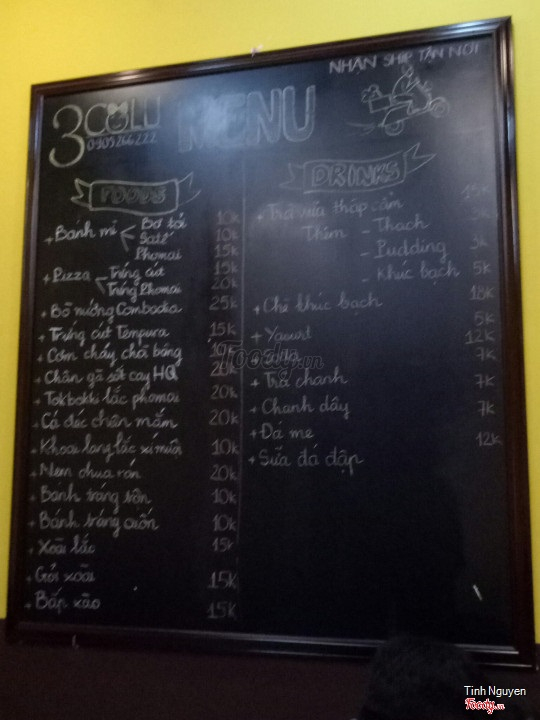 NHẬN SHIP TẬN NƠI
3 COLD
0905266222
MENU
FOODS
+ Bánh mì < Bơ tỏi 10k
Saté 10k
Phomai 15k
+ Pizza < Trứng cút 15k
Trứng Phomai 20k
+ Bò nướng Cambodia 25k
+ Trứng cút Tempura 15k
+ Cơm cháy chà bông 10k
+ Chân gà sốt cay HQ 20k
+ Tokbokki lắc phomai 20k
+ Cá đéc chiên mắm 20k
+ Khoai lang lắc xí muội 10k
+ Nem chua rán 20k
+ Bánh tráng trộn 10k
+ Bánh tráng cuốn 10k
+ Xoài lắc 15k
+ Gỏi xoài 15k
+ Bắp xào 15k
DRINKS
+ Trà sữa thập cẩm 15k
Thêm - Thạch 3k
- Pudding 3k
- Khúc bạch 5k
+ Chè khúc bạch 18k
+ Yaourt 5k
+ Soda 12k
+ Trà chanh 7k
+ Chanh dây 7k
+ Đá me 7k
+ Sữa đá dập 12k
Foody.vn
Tinh Nguyen
Foody.vn